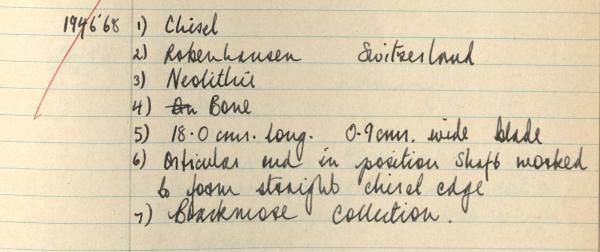 1946'68 1) Chisel
2) Robenhausen Switzerland
3) Neolithic
4) Bone
5) 18.0 cms. long. 0.9 cms. wide blade
6) Articular end in position shaft worked
to form straight chisel edge
7) Blackmore Collection.